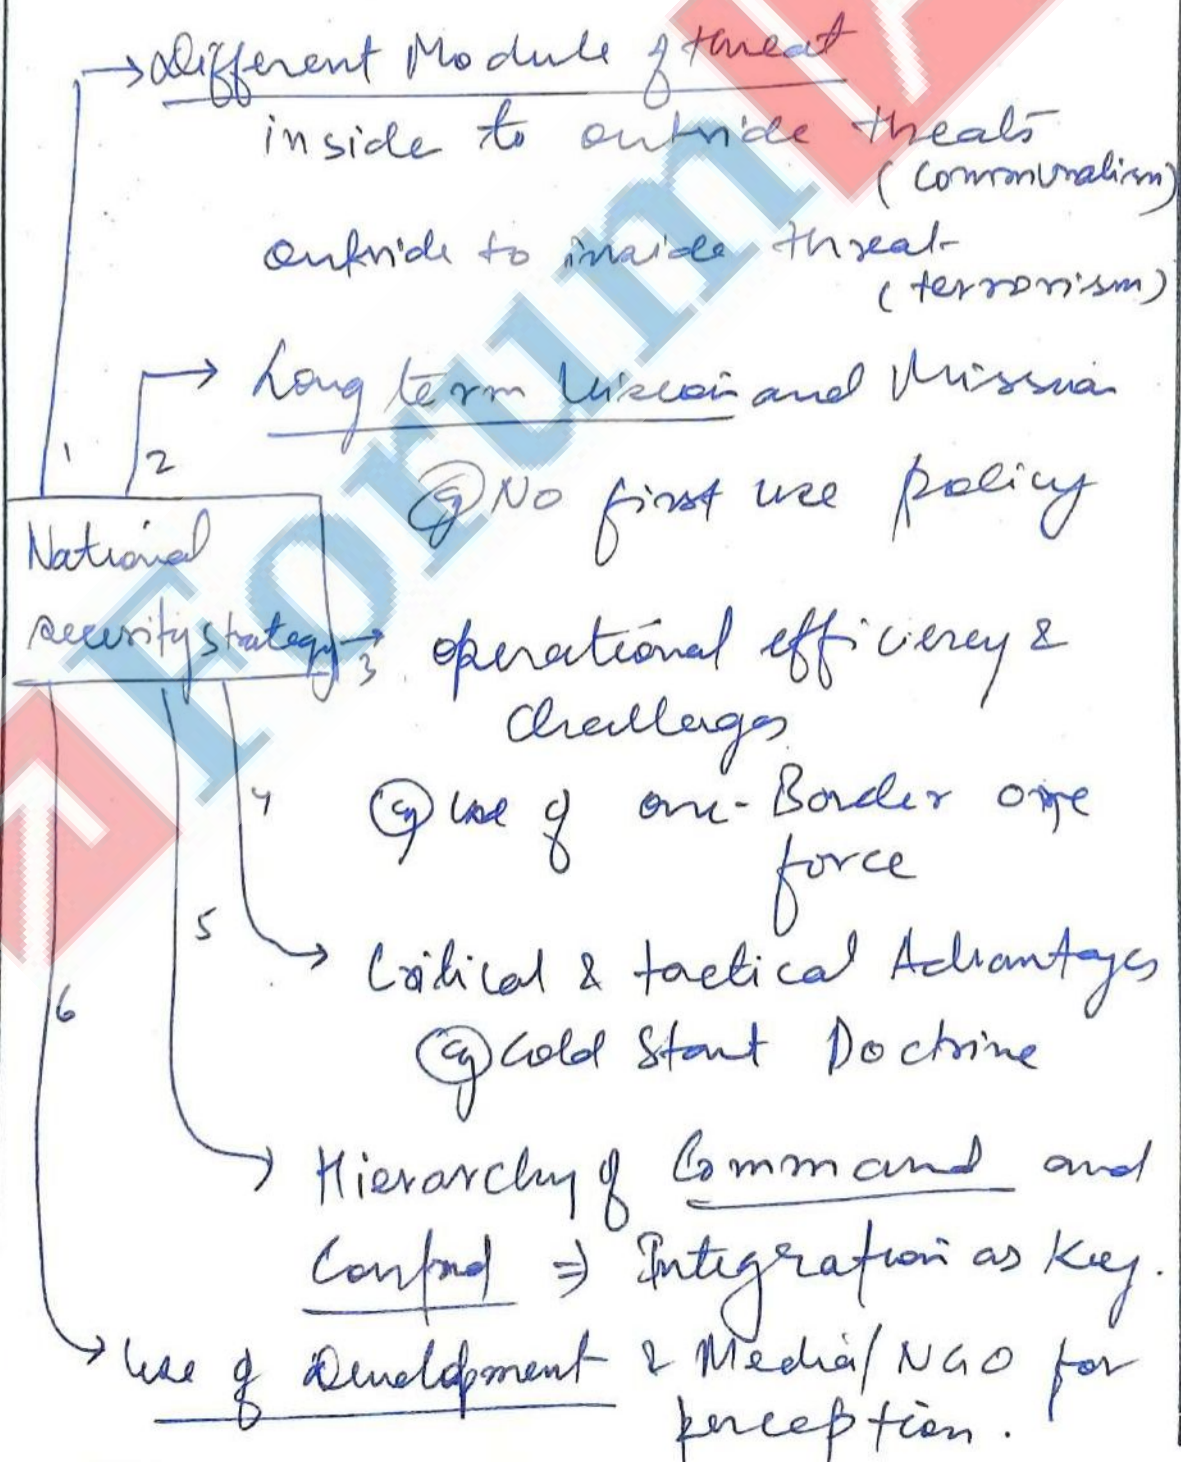 Different Module of threat
inside to outside threats
(communalism)
outside to inside threat
(terrorism)
Long term Vision and Mission
eg No first use policy
1
2
National
security strategy
3
operational efficiency &
challenges
eg Use of one-Border one
force
4
Critical & tactical Advantages
eg Cold Start Doctrine
5
Hierarchy of Command and
Control ⇒ Integration as Key.
6
Use of Development & Media/NGO for
perception.
Forum